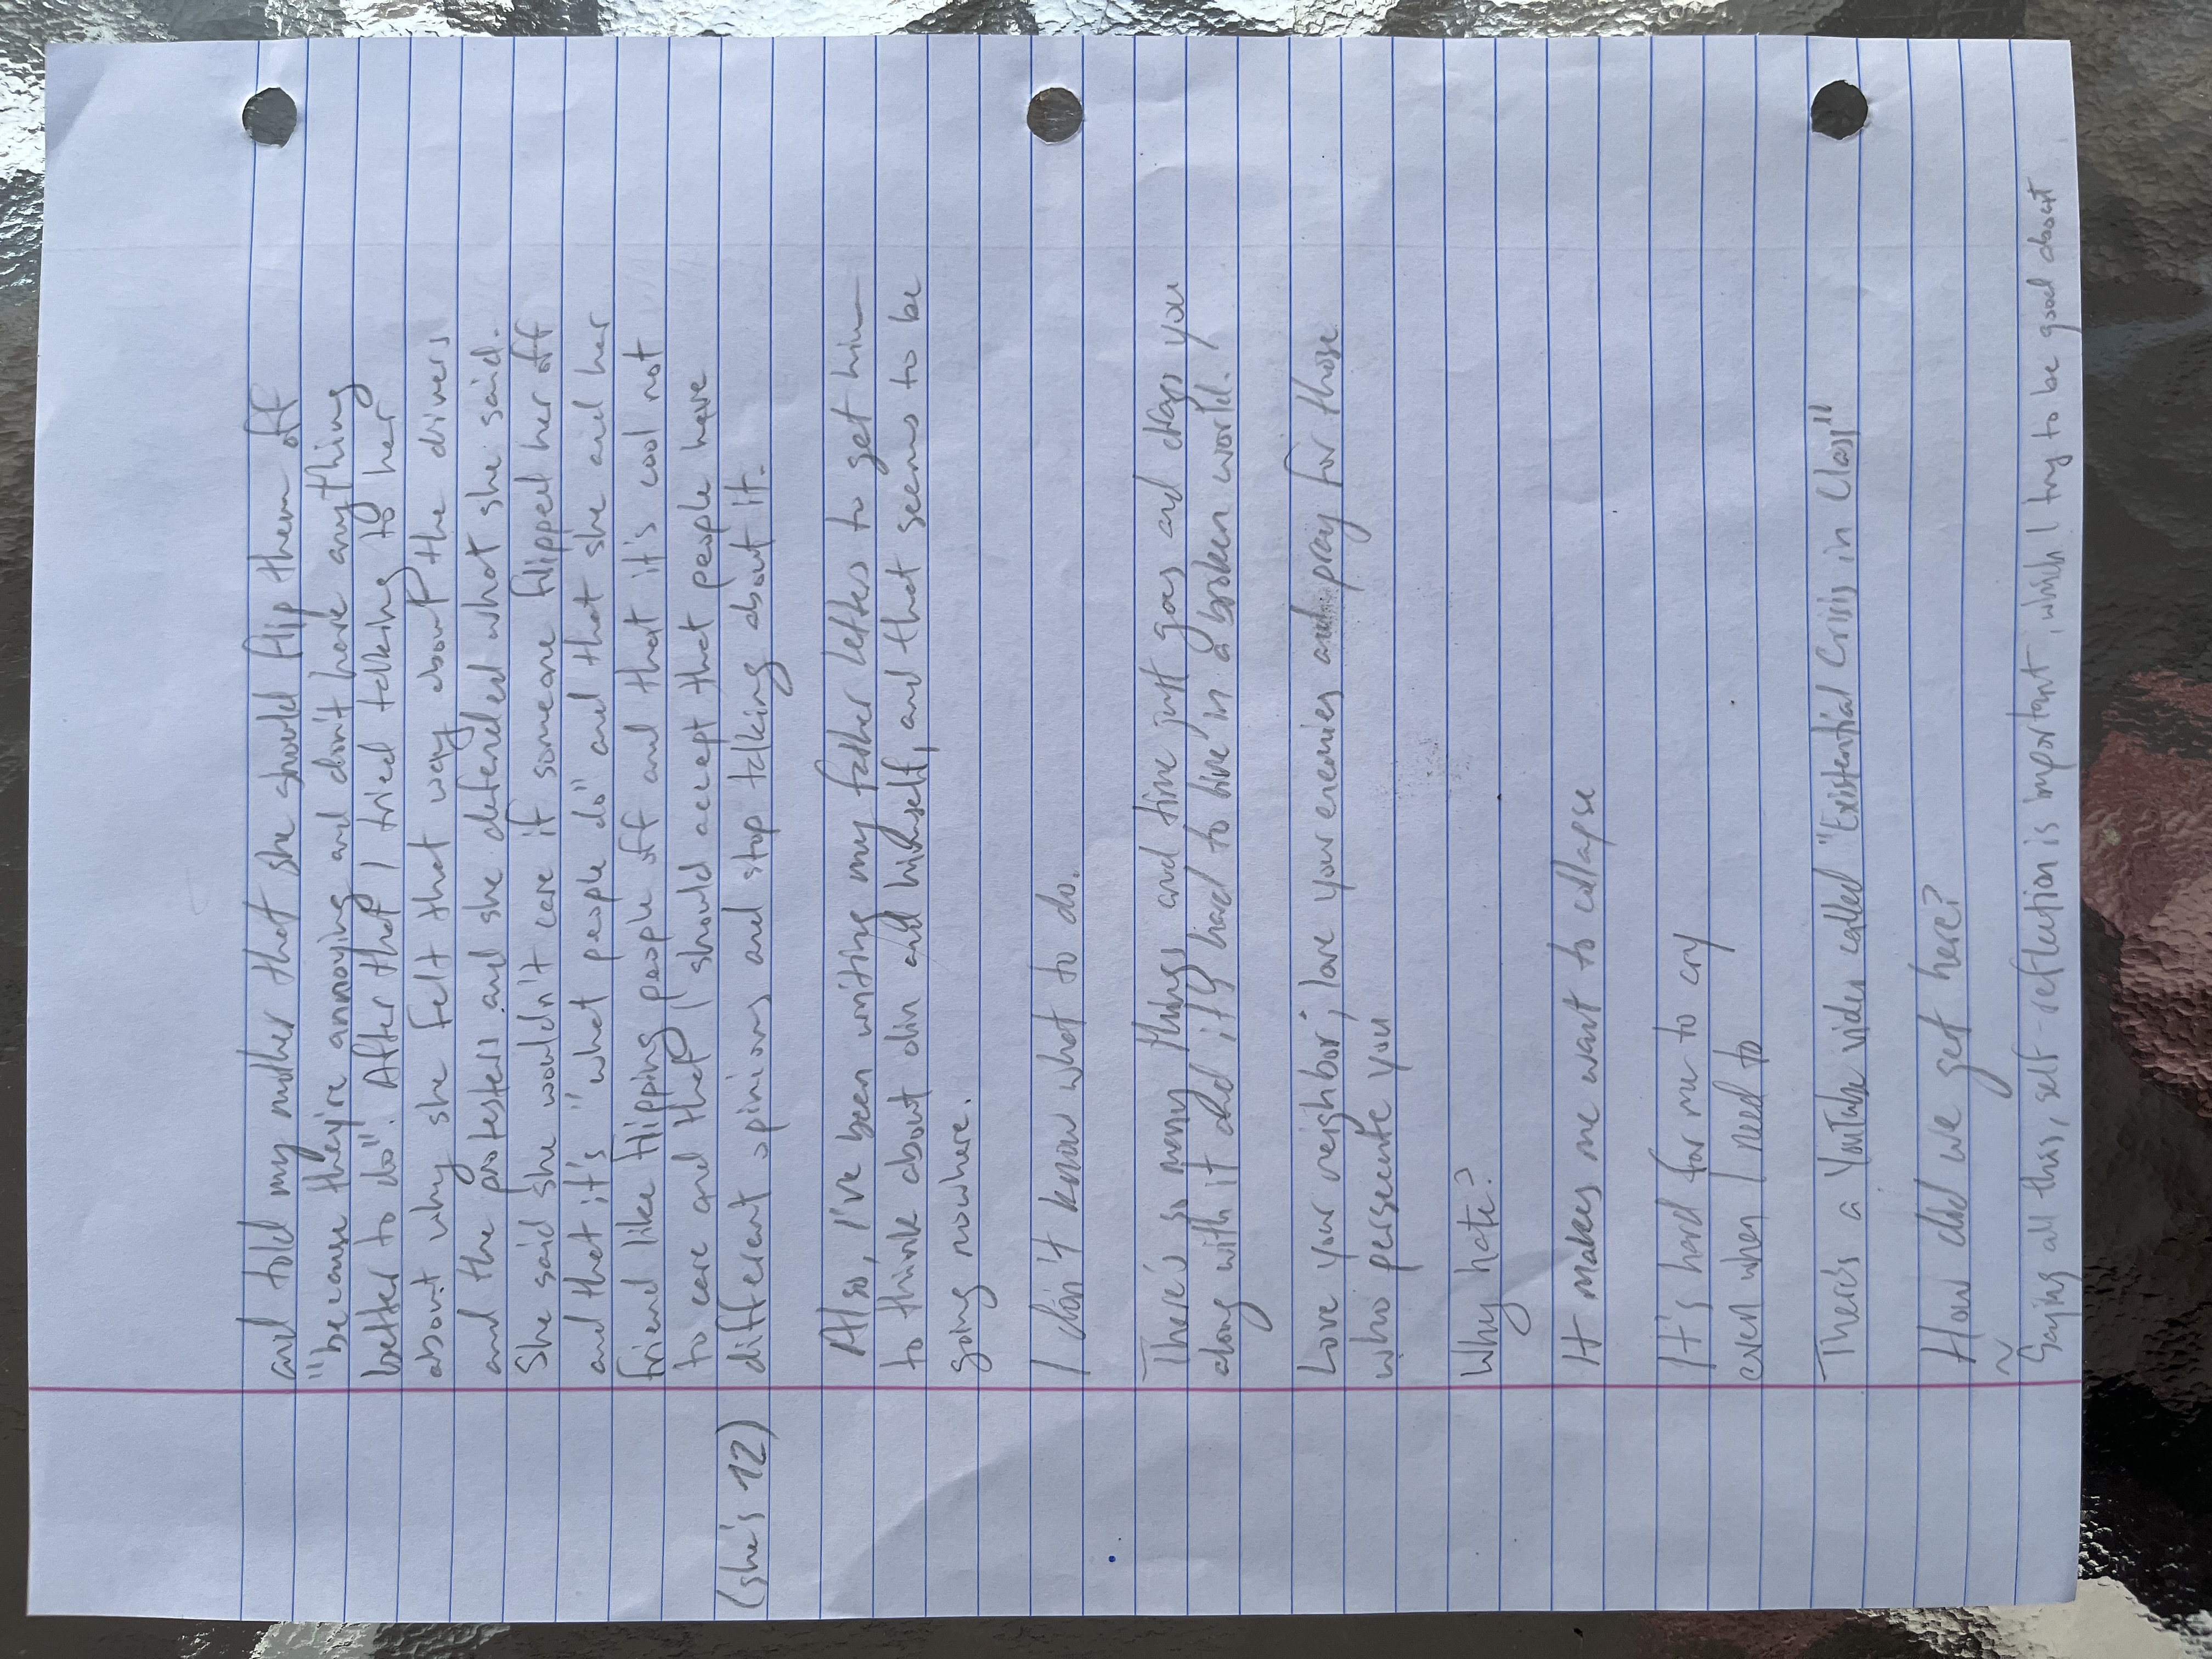 and told my mother that she should flip them off
"because they're annoying and don't have anything
better to do". After that I tried talking to her
about why she felt that way about the drivers
and the protesters and she defended what she said.
She said she wouldn't care if someone flipped her off
and that it's "what people do" and that she and her
friend like flipping people off and that it's cool not
to care and that I should accept that people have
(she's 12) different opinions and stop talking about it.
Also, I've been writing my father letters to get him
to think about and himself, and that seems to be
going nowhere.
I don't know what to do.
There's so many things and time just goes and drags you
along with it and it's hard to live in a broken world.
Love your neighbor; love your enemies and pray for those
who persecute you
Why hate?
It makes me want to collapse
It's hard for me to cry
even when I need to
There's a YouTube video called "Existential Crisis in Class"
How did we get here?
~
Saying all this, self-reflection is important, which I try to be good about